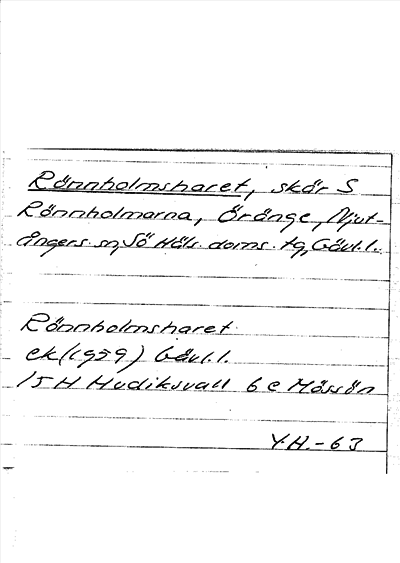 Rönnholmsharet, skär S
Rönnholmarna, Öränge, Njut-
ångers sn, Sö Häls. doms. tg, Gävl.l.
Rönnholmsharet
ek (1959) Gävl.l.
15 H Hudiksvall 6 c Mössön
Y.H.-63